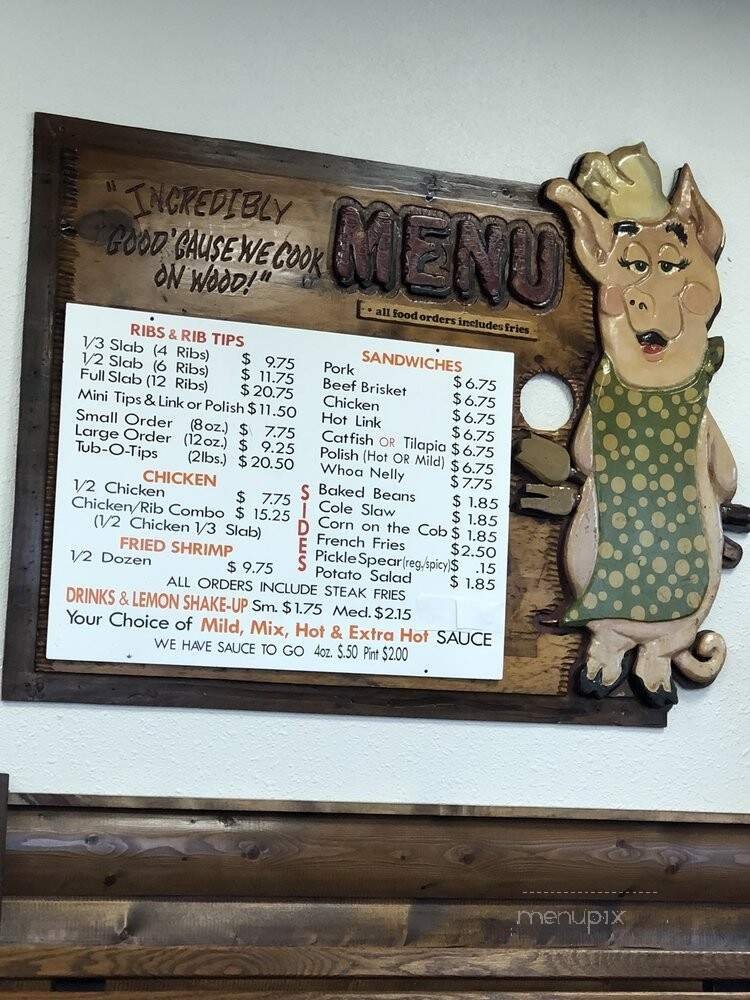 "INCREDIBLY
GOOD 'CAUSE WE COOK
ON WOOD!"
MENU
• all food orders includes fries
RIBS & RIB TIPS
1/3 Slab (4 Ribs) $ 9.75
1/2 Slab (6 Ribs) $ 11.75
Full Slab (12 Ribs) $ 20.75
Mini Tips & Link or Polish $ 11.50
Small Order (8 oz.) $ 7.75
Large Order (12 oz.) $ 9.25
Tub-O-Tips (2 lbs.) $ 20.50
CHICKEN
1/2 Chicken $ 7.75
Chicken/Rib Combo $ 15.25
(1/2 Chicken 1/3 Slab)
FRIED SHRIMP
1/2 Dozen $ 9.75
SANDWICHES
Pork $ 6.75
Beef Brisket $ 6.75
Chicken $ 6.75
Hot Link $ 6.75
Catfish OR Tilapia $ 6.75
Polish (Hot OR Mild) $ 6.75
Whoa Nelly $ 7.75
SIDES
Baked Beans $ 1.85
Cole Slaw $ 1.85
Corn on the Cob $ 1.85
French Fries $2.50
Pickle Spear (reg./spicy) $ .15
Potato Salad $ 1.85
ALL ORDERS INCLUDE STEAK FRIES
DRINKS & LEMON SHAKE-UP Sm. $1.75 Med. $2.15
Your Choice of Mild, Mix, Hot & Extra Hot SAUCE
WE HAVE SAUCE TO GO 4oz. $.50 Pint $2.00
menupix